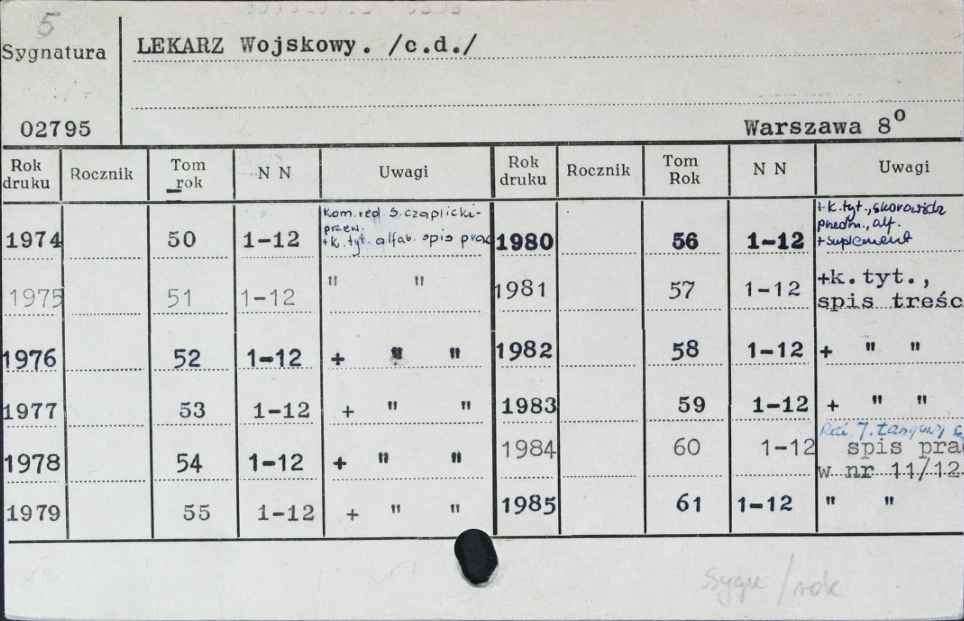 5
Sygnatura
LEKARZ Wojskowy. /c.d./
02795
Warszawa 8º
Rok druku Rocznik Tom rok N N Uwagi Rok druku Rocznik Tom Rok N N Uwagi
1974 50 1-12 Kom. red S. Czaplicki-
przew.
+k. tyt. alfab. spis prac
1980 56 1-12 +k.tyt., skorowidz
przedm., alf.
+suplement
1975 51 1-12 " "
1981 57 1-12 +k.tyt.,
spis treśc
1976 52 1-12 + " "
1982 58 1-12 + " "
1977 53 1-12 + " "
1983 59 1-12 + " "
1978 54 1-12 + " "
1984 60 1-12 spis prac
w nr 11/12
1979 55 1-12 + " "
1985 61 1-12 " "
sygn/rok